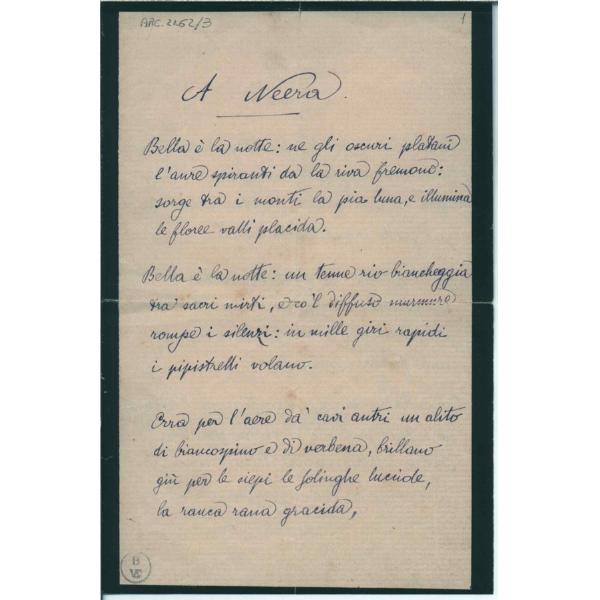 ARC. 2262/3
1
A Neera.
Bella è la notte: ne gli oscuri platani
l'aure spiranti da la riva fremono:
sorge tra i monti la pia luna, e illumina
le floree valli placida.
Bella è la notte: un tenue rio biancheggia
tra' sacri mirti, e co 'l diffuso murmure
rompe i silenzi: in mille giri rapidi
i pipistrelli volano.
Erra per l'aere da' cavi antri un alito
di biancospino e di verbena, brillano
giù per le siepi le solinghe lucciole,
la rauca rana gracida,
B